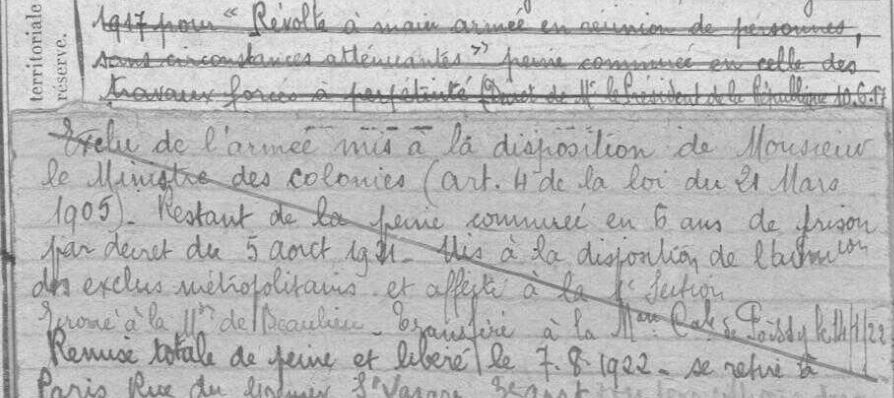 territoriale
réserve.
1917 pour "Révolte à main armée en réunion de personnes,
sans circonstances atténuantes" peine commuée en celle des
travaux forcés à perpétuité (Décret de Mr le Président de la République 10.6.17
Exclu de l'armée mis à la disposition de Monsieur
le Ministre des colonies (art. 4 de la loi du 21 Mars
1905). Restant de la peine commuée en 6 ans de prison
par décret du 5 aout 1921. Mis à la disposition de
des exclus métropolitains et affecté à la Section
à la Mon de Beaulieu. Transféré à la Mon Cale de Poissy le 14/1/22
Remise totale de peine et libéré le 7.8.1922. se retire à
Paris Rue du